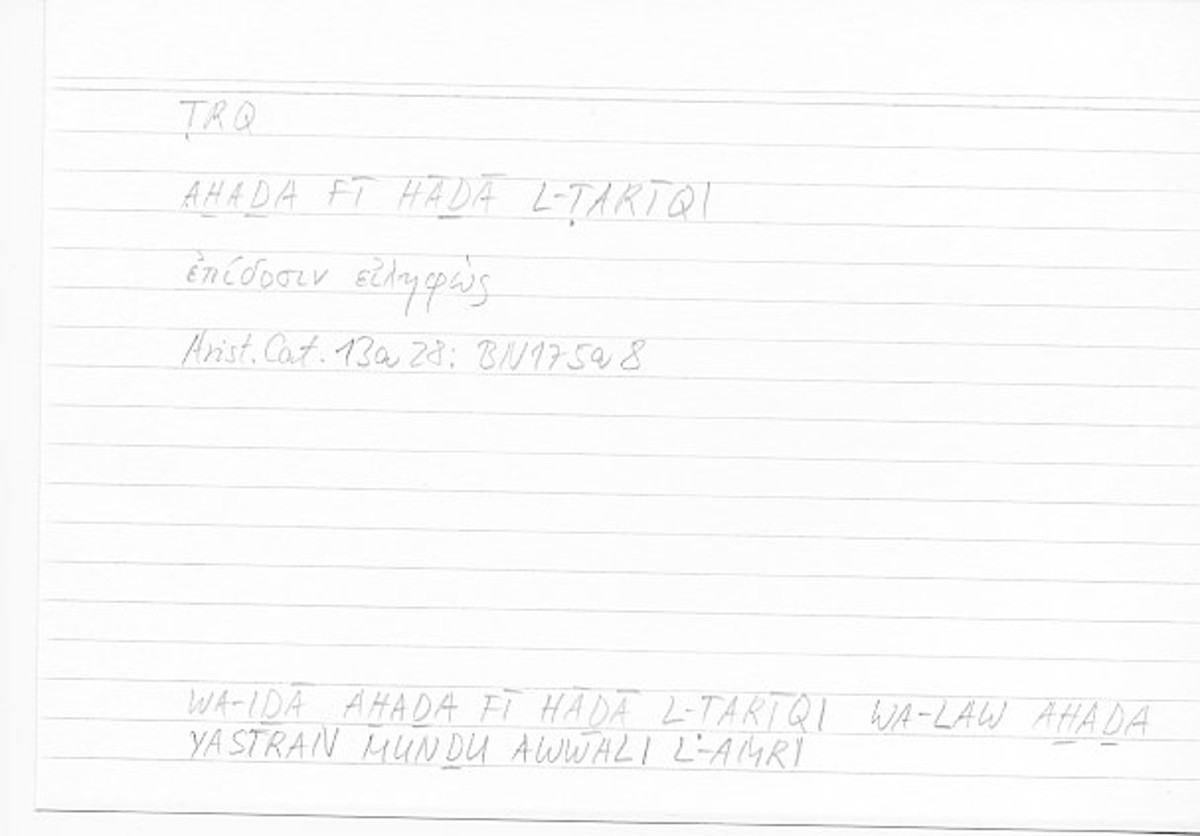 ṬRQ
AH̱AḎA FĪ HĀḎĀ L-ṬARĪQI
ἐπίδοσιν εἰληφώς
Arist. Cat. 13a 28: BN175a 8
WA-IḎĀ AH̱AḎA FĪ HĀḎĀ L-ṬARĪQI WA-LAW AH̱AḎA
YASĪRAN MUNḎU AWWALI L-AMRI